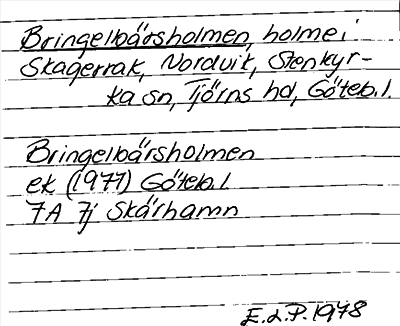 Bringelbärsholmen, holme i
Skagerrak, Nordvik, Stenkyr-
ka sn, Tjörns hd, Göteb.l.
Bringelbärsholmen
ek (1977) Göteb.l
7A 7j Skärhamn
E.L.P. 1978